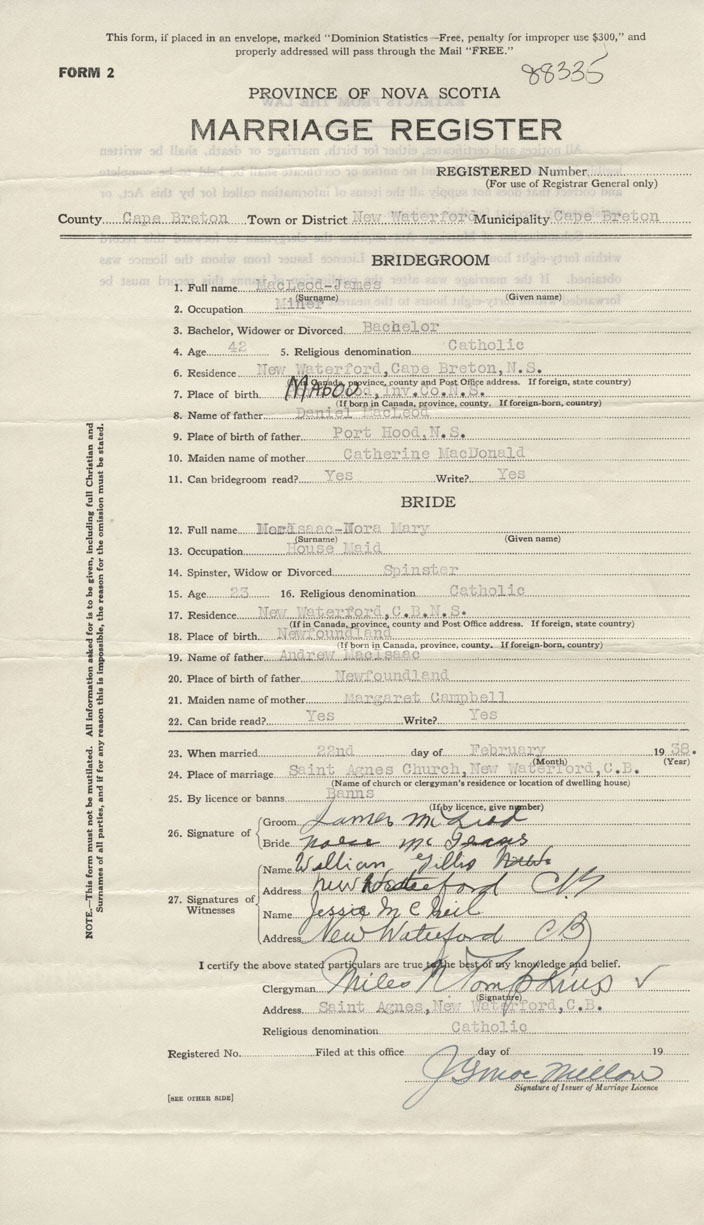 This form, if placed in an envelope, marked "Dominion Statistics—Free, penalty for improper use $300," and
properly addressed will pass through the Mail "FREE."
FORM 2
88335
PROVINCE OF NOVA SCOTIA
MARRIAGE REGISTER
REGISTERED Number
(For use of Registrar General only)
County Cape Breton Town or District New Waterford Municipality Cape Breton
BRIDEGROOM
1. Full name MacLeod-James
(Surname) (Given name)
2. Occupation Miner
3. Bachelor, Widower or Divorced Bachelor
4. Age 42 5. Religious denomination Catholic
6. Residence New Waterford, Cape Breton, N.S.
Canada, province, county and Post Office address. If foreign, state country)
7. Place of birth. Mabou Inv.Co.N.S.
(If born in Canada, province, county. If foreign-born, country)
8. Name of father Daniel MacLeod
9. Place of birth of father Port Hood, N.S.
10. Maiden name of mother Catherine MacDonald
11. Can bridegroom read? Yes Write? Yes
BRIDE
12. Full name MacIsaac-Nora Mary
(Surname) (Given name)
13. Occupation House Maid
14. Spinster, Widow or Divorced Spinster
15. Age 23 16. Religious denomination Catholic
17. Residence New Waterford, C.B.N.S.
(If in Canada, province, county and Post Office address. If foreign, state country)
18. Place of birth. Newfoundland
(If born in Canada, province, county. If foreign-born, country)
19. Name of father Andrew MacIsaac
20. Place of birth of father Newfoundland
21. Maiden name of mother Margaret Campbell
22. Can bride read? Yes Write? Yes
23. When married 22nd day of February 1938.
(Month) (Year)
24. Place of marriage Saint Agnes Church, New Waterford, C.B.
(Name of church or clergyman's residence or location of dwelling house)
25. By licence or banns Banns
(If by licence, give number)
26. Signature of
Groom James McLeod
Bride
27. Signatures of Witnesses
Name William Gillis
Address New Waterford CB
Name Jessie McNeil
Address New Waterford CB
I certify the above stated particulars are true to the best of my knowledge and belief.
Clergyman Miles N Tompkins
(Signature)
Address Saint Agnes, New Waterford, C.B.
Religious denomination Catholic
Registered No. Filed at this office day of 19
J G MacMillan
Signature of Issuer of Marriage Licence
[SEE OTHER SIDE]
NOTE.—This form must not be mutilated. All information asked for is to be given, including full Christian and
Surnames of all parties, and if for any reason this is impossible, the reason for the omission must be stated.